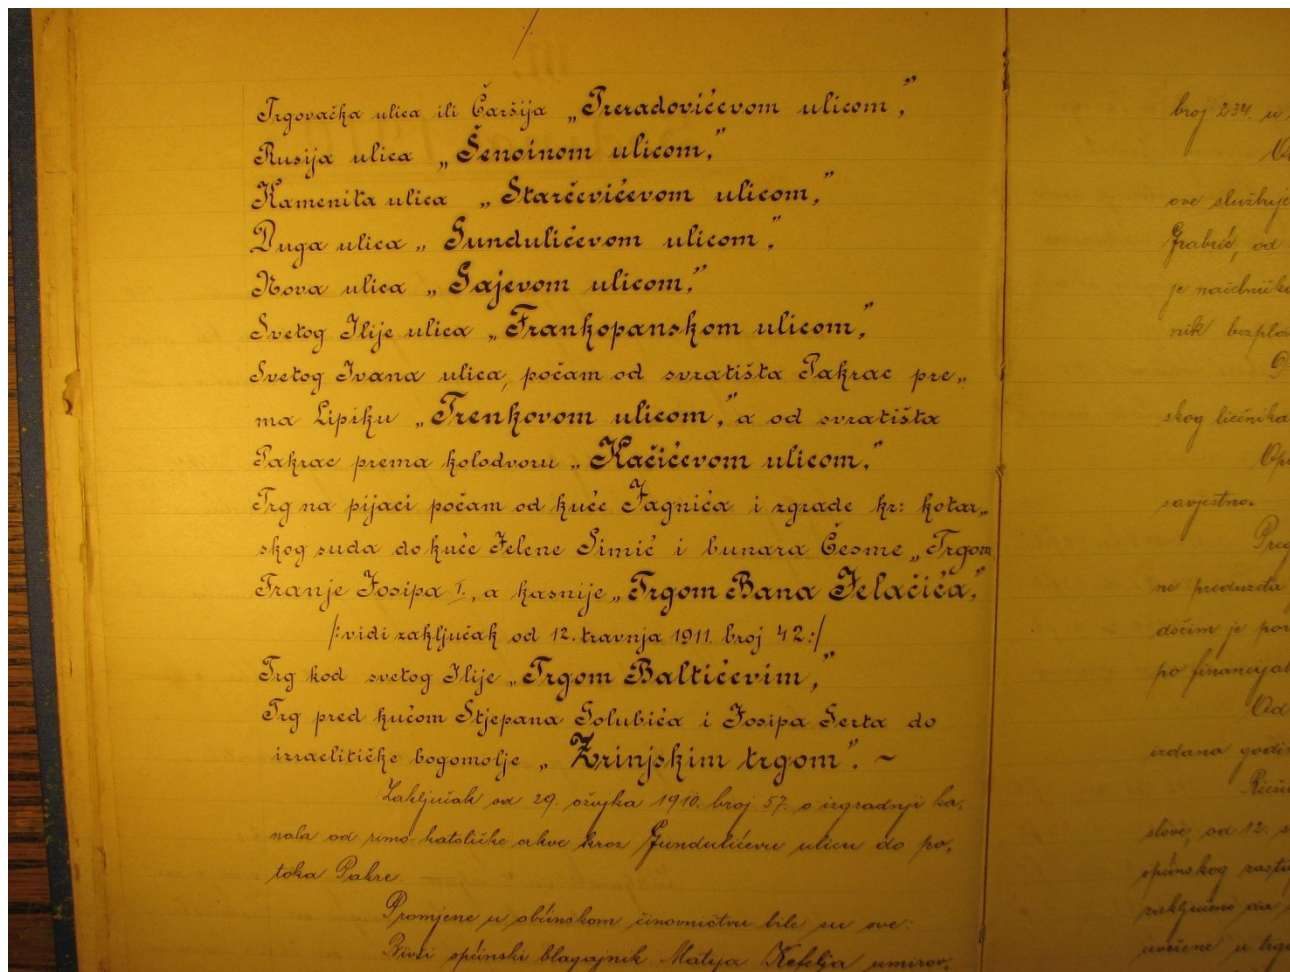 Trgovačka ulica ili Čaršija „Preradovićevom ulicom,"
Rusija ulica „Šenoinom ulicom,"
Kamenita ulica „Starčevićevom ulicom,"
Duga ulica „Gundulićevom ulicom",
Nova ulica „Gajevom ulicom,"
Svetog Ilije ulica „Frankopanskom ulicom,"
Svetog Ivana ulica, počam od svratišta Pakrac pre„
ma Lipiku „Trenkovom ulicom," a od svratišta
Pakrac prema kolodvoru „Kačićevom ulicom."
Trg na pijaci počam od kuće Jagnića i zgrade kr: kotar„
skog suda do kuće Jelene Simić i bunara Česme „Trgom
Franje Josipa I., a kasnije „Trgom Bana Jelačića,"
/:vidi zaključak od 12. travnja 1911. broj 42:/
Trg kod svetog Ilije „Trgom Baltićevim,"
Trg pred kućom Stjepana Golubića i Josipa Serta do
izraelitičke bogomolje „Zrinjskim trgom". ~
Zaključak od 29. ožujka 1910. broj 57. o izgradnji ka„
nala od rimo-katoličke crkve kroz Gundulićevu ulicu do po„
toka Pakre.
Promjene u obćinskom činovničtvu bile su ove:
Bivši općinski blagajnik Matija Kefelja umirov„
broj 234. u
ove službuje
Grabrić, od
je načelniku
nik bezplat
skog liečnika
savjestno.
ne preduzeta
dočim je por
po financijal
izdana godi
slove, od 12. s
općinskog zastu
zaključeno da
uvežene u trg